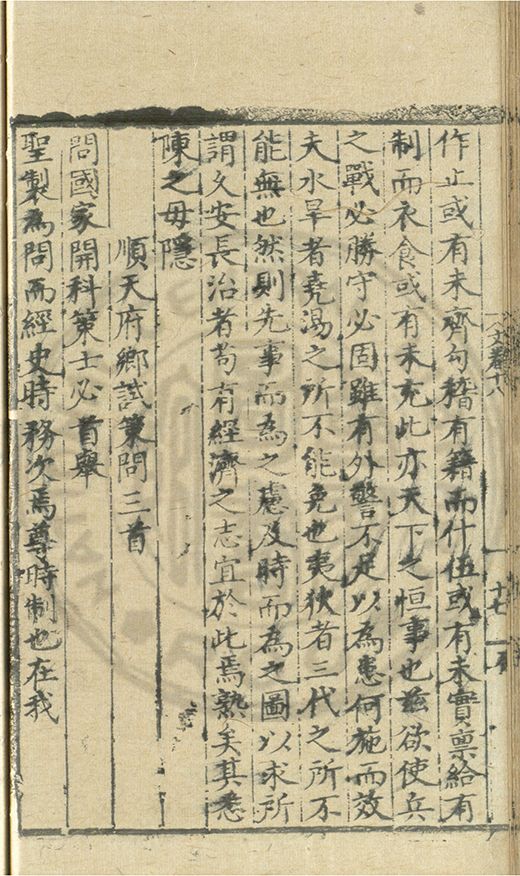 作止或有未齊勾稽有籍而什伍或有未實稟給有
制而衣食或有未充此亦天下之恒事也兹欲使兵
之戰必勝守必固雖有外警不足以為患何施而效
夫水旱者堯湯之所不能免也夷狄者三代之所不
能無也然則先事而為之慮及時而為之圖以求所
謂久安長治者苟有經濟之志宜於此焉熟矣其悉
陳之毋隱
順天府鄉試策問三首
問國家開科策士必首舉
聖製為問而經史時務次焉尊時制也在我
文卷十八
十七